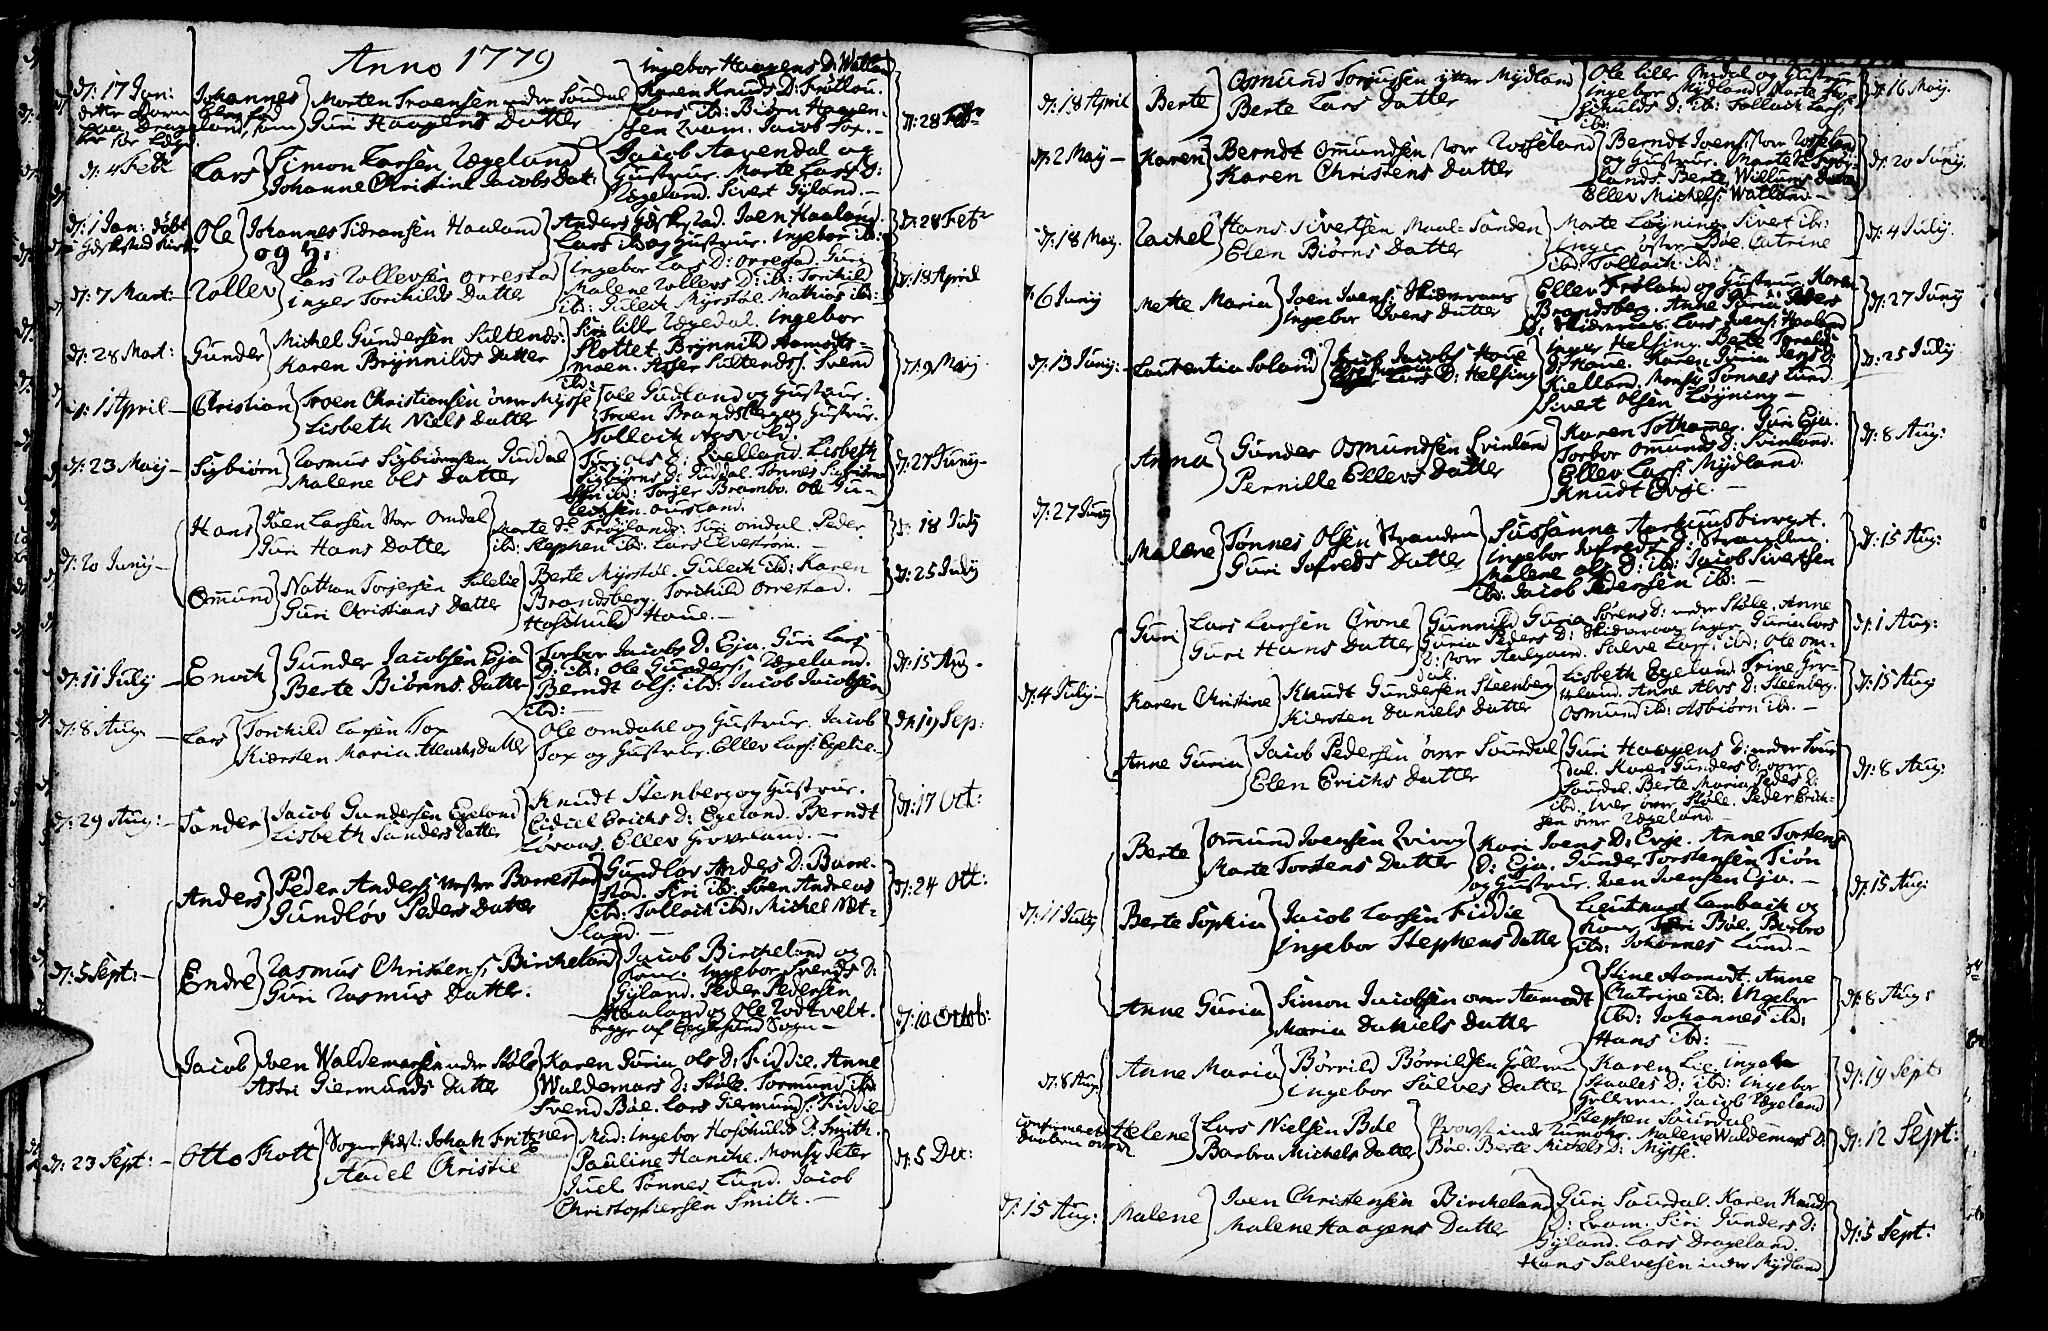 Anno 1779
d: 17 Jan:
dette Barn blev
Johannes
Morten Troensen under Soudal
Guri Haagens Datter
Ingebor Haagens D: Watland
Karen Knuds D: Frøtlou.
Lars ibd: Biørn Haagen-
sen Qvam. Jacob Tox.-
d: 28 Febr
d: 4 Febr
Lars
Simon Larsen Ægeland
Johanne Christine Jacobs Dat:
Jacob Aavendal og
Hustrue. Marte Lars D:
Ægeland. Sivert Gyland.-
d: 1 Jan: døbt
Ole
Johannes Tidransen Haaland
og H:
Anders Hoskestad. Iven Haaland
Lars ibd og Hustrue. Ingebor ib:
d: 28 Febr
d: 7 Mart:
Rollev
Lars Rollevsen Orrestad
Inger Torchilds Datter
Ingebor Lars D: Orrestad. Guri
Malene Rollevs D: ib: Torchild
ibd: Guleich Myrstøl. Mathias ibd:
d: 18 April
d: 28 Mart:
Gunder
Michel Gundersen Sultends:
Karen Brynnilds Datter
Siri lille Ægedal. Ingebor
Slottet. Brynnild Aamodts-
moen. Asser Sultends: Svend
ibd:
d: 9 May
d: 1 April
Christian
Troen Christiansen over Mysse
Lisbeth Niels Datter
Ole Gudland og Hustrue.
Troen Brandsberg og Hustrue.
Tollach Aasvold.
d: 23 Maij
Sigbiørn
Rasmus Sigbiørnsen Guddal
Malene Ols Datter
Siri Ols D: Qvelland. Lisbeth
Sigbiørns D: Guddal. Tønnes Sigbiørn
sen ibd: Torjer Brambo. Ole Gu-
leichsen Oursland.
d: 27 Junij
d: 20 Junij
Hans
Iven Larsen Stor Omdal
Guri Hans Datter
Marte D: Frøylands: Siri Omdal. Peder
ibd: Stephen ibd: Lars Elvestrøm.-
d: 18 July
Omund
Nathan Torjersen Lilelie
Guri Christians Datter
Berte Myrstøl. Guleich ibd: Karen
Brandsberg. Torchild Orrestad.
Hoschuld Houe.-
d: 25 July
d: 11 July
Enoch
Gunder Jacobsen Eja
Berte Biørns Datter
Torbor Jacobs D: Eja. Guri Lars
D: ib: Ole Gunders: Ægeland.
Berndt Ols: ib: Jacob Jacobsen
ibd:
d: 15 Aug.
d: 8 Aug.
Lars
Torchild Larsen Tox
Kiersten Maria Datter
Ole Omdahl og Hustrue. Jacob
Tox og Hustrue. Ellev Lars: Egelie.
d: 19 Sep:
d: 29 Aug:
Sander
Jacob Gundersen Egeland
Lisbeth Sanders Datter
Knudt Stenberg og Hustrue.
Eidiel Erichs D: Egeland. Berndt
Lovaas. Ellev Groveland.-
d: 17 Oct:
d: 5 Sept:
Anders
Peder Anders: Nestre Barrestad
Gundlov Peders Datter
Gundlov Anders D: Barre-
stad. Siri ibd: Søren Andreas
ibd: Tollach ibd: Michel Net-
land.-
d: 24 Oct:
Endre
Rasmus Christens: Bircheland
Guri Rasmus Datter.
Jacob Bircheland og
Houe. Ingebor Svends D:
Gyland. Peder Pedersen
Haaland og Ole Rodtvelt.
begge af Eggersund Sogn-
d: 10 Octob:
Jacob
Iven Waldemarsen under Støle
Astri Giermunds Datter
Karen Guria Ols D: Fiddie. Anne
Waldemars D: Støle. Tormund ibd:
Svend Bøe. Lars Giermunds: Fiddie
d: 23 Sept:
Otto Kott
Sogne Præst: Johan Fritzner
Aadel Christie
Mad: Ingebor Hoschulds D: Smith.
Pauline Hanche. Mons: Peter
Juel. Tønnes Lund. Jacob
Christophersen Smith.-
d: 5 Dec:
d: 18 April
Berte
Osmund Torjusen ytre Mydland
Berte Lars Datter
Ole lille Omdal og Hustrue
Ingebor Mydland. Marte Ho-
schulds D: ib: Tollach Lars:
ib:
d: 16 Maij.
d: 2 Maij
Karen
Berndt Omundsen stor Rosseland
Karen Christens Datter
Berndt Ivens: stor Rosseland
og Hustrue. Marte
lands. Berte Willums Datter
Ellev Michels: Watland.-
d: 20 Junij.
d: 18 Maij.
Rachel
Hans Sivertsen Maal-Sanden
Elen Biørns Datter
Marte Løyning. Sivert ib:
Inger østre Bøe. Catrine
ib: Tollach ib:
d: 4 July.
6 Junij
Mette Maria
Iven Ivens: Skidnraas
Ingebor Svens Datter
Ellev Frøland og Hustrue. Karen
Brandsberg. Anne Guria Peders
D: Skidnraas. Lars Ivens: Haaland
d: 27 Junij
d: 13 Junij:
Laurentia Soland
Jacob Jacobs: Houe
Lars D: Helsing
Inger Helsing. Berte Torvalds
D: Houe. Karen Guria Jens D:
Kielland. Mons: Tønnes Lund.
Sivert Olsen Løyning-
d: 25 July
d: 27 Junij
Anna
Gunder Osmundsen Svinland
Pernille Ellevs Datter
Karen Tothamer. Guri Eja.
Torbor Omunds D: Svinland.
Ellev Lars: Mydland.
Knudt Evje.-
d: 8 Aug:
Malene
Tønnes Olsen Stranden
Guri Jofreds Datter
Sussanna Aarhuusbirwest.
Ingebor Jofreds D: Stranden.
Malene Ols D: ib: Jacob Sivertsen
ib: Jacob Pedersen ib:-
d: 15 Aug:
d: 4 July
Guri
Lars Larsen Grone
Guri Hans Datter
Gunnild Guria Sørens D: under Støle. Anne
Guria Peders D: Skidnraas. Inger Guria Lars
D: stor Aalgaard. Salve Lars: ibd: Ole Om-
dal.
d: 1 Aug:
Karen Christine
Knudt Gundersen Steenberg
Kiersten Daniels Datter
Lisbeth Egeland. Trine Gro-
veland. Anne Alvs D: Steenberg.
Osmund ib: Asbiørn ib.-
d: 15 Aug:
Anne Guria
Jacob Pedersen over Sourdal
Elen Erichs Datter
Guri Haagens D: under Sour
dal. Karen Gunders D: over
Sourdal. Berte Maria Peders D:
ib: Iver over Støle. Peder Erich-
sen over Ægeland-
d: 8 Aug:
d: 11 July
Berte
Omund Ivensen Qvirvog
Marte Torstens Datter
Kari Ivens D: Evje. Anne Torstens
D: Eja. Gunder Torstensen Tiøn
og Hustrue. Iven Ivensen Eja.-
d: 15 Aug:
Berte Sophia
Jacob Larsen Fiddie
Ingebor Stephens Datter
Lieutnant Lambach og
Houe. Siri Bøe. Barbro
ib: Johannes Lund-
Anne Guria
Simon Jacobsen over Aamodt
Maria Daniels Datter
Stine Aamodt. Anne
Catrine ib: Ingebor
ib: Johannes ib:
Hans ib:
d: 8 Aug:
d: 8 Aug:
Anne Maria
Børrild Børrildsen Gyllerum
Ingebor Salves Datter
Karen Lie. Ingebor
Staales D: ib: Ingebor
Gyllerum. Jacob Ægeland
Stephen Sourdal
d: 19 Sept
Confirmeret
Daaben over
Helene
Lars Nielsen Bøe
Barbra Michels Datter
Provstinde Lumohe. Malene Waldemars D:
Bøe. Berte Michels D: Mysse.
d: 12 Sept:
d: 15 Aug:
Malene
Iven Christensen Bircheland
Malene Haagens Datter
Guri Sourdal. Karen Knuds
D: Qvam. Siri Gunders D:
Gyland. Lars Drageland.
Hans Salvesen indre Mydland
d: 5 Sept: